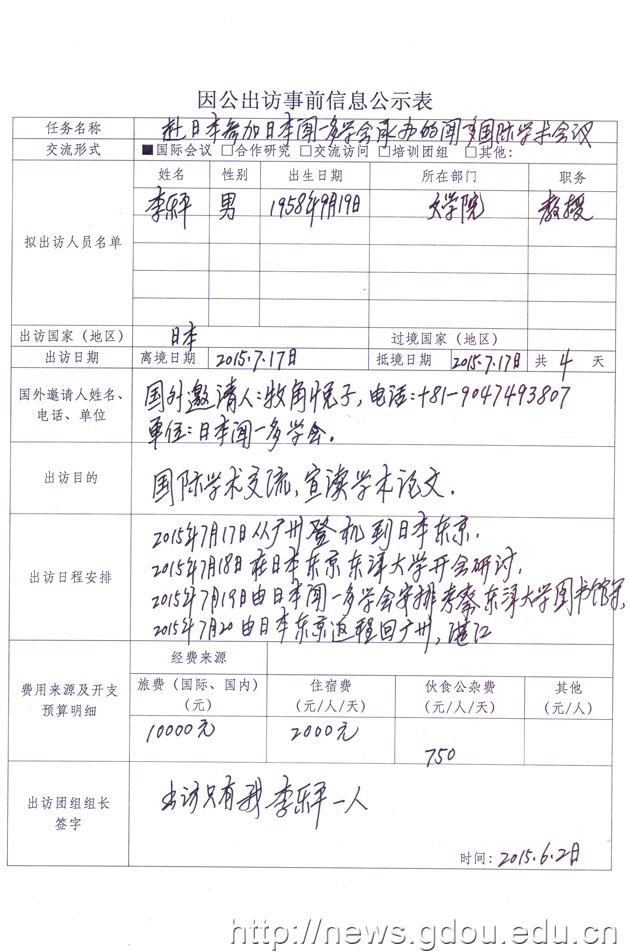 因公出访事前信息公示表
任务名称 赴日本参加日本闻一多学会承办的闻一多国际学术会议
交流形式 ■国际会议 □合作研究 □交流访问 □培训团组 □其他:
拟出访人员名单 姓名 性别 出生日期 所在部门 职务
李乐平 男 1958年9月19日 文学院 教授
出访国家（地区） 日本 过境国家（地区）
出访日期 离境日期 2015.7.17日 抵境日期 2015.7.17日 共 4 天
国外邀请人姓名、
电话、单位
国外邀请人:牧角悦子,电话:+81-9047493807
单位:日本闻一多学会.
出访目的 国际学术交流,宣读学术论文.
出访日程安排
2015年7月17日从广州登机到日本东京.
2015年7月18日在日本东京东洋大学开会研讨.
2015年7月19日由日本闻一多学会安排考察东洋大学图书馆
2015年7月20由日本东京返程回广州,湛江
费用来源及开支
预算明细
经费来源
旅费（国际、国内） 住宿费 伙食公杂费 其他
（元） （元/人/天） （元/人/天） （元/人）
10000元 2000元 750
出访团组组长
签字
出访只有我李乐平一人
时间: 2015.6.2日
http://news.gdou.edu.cn